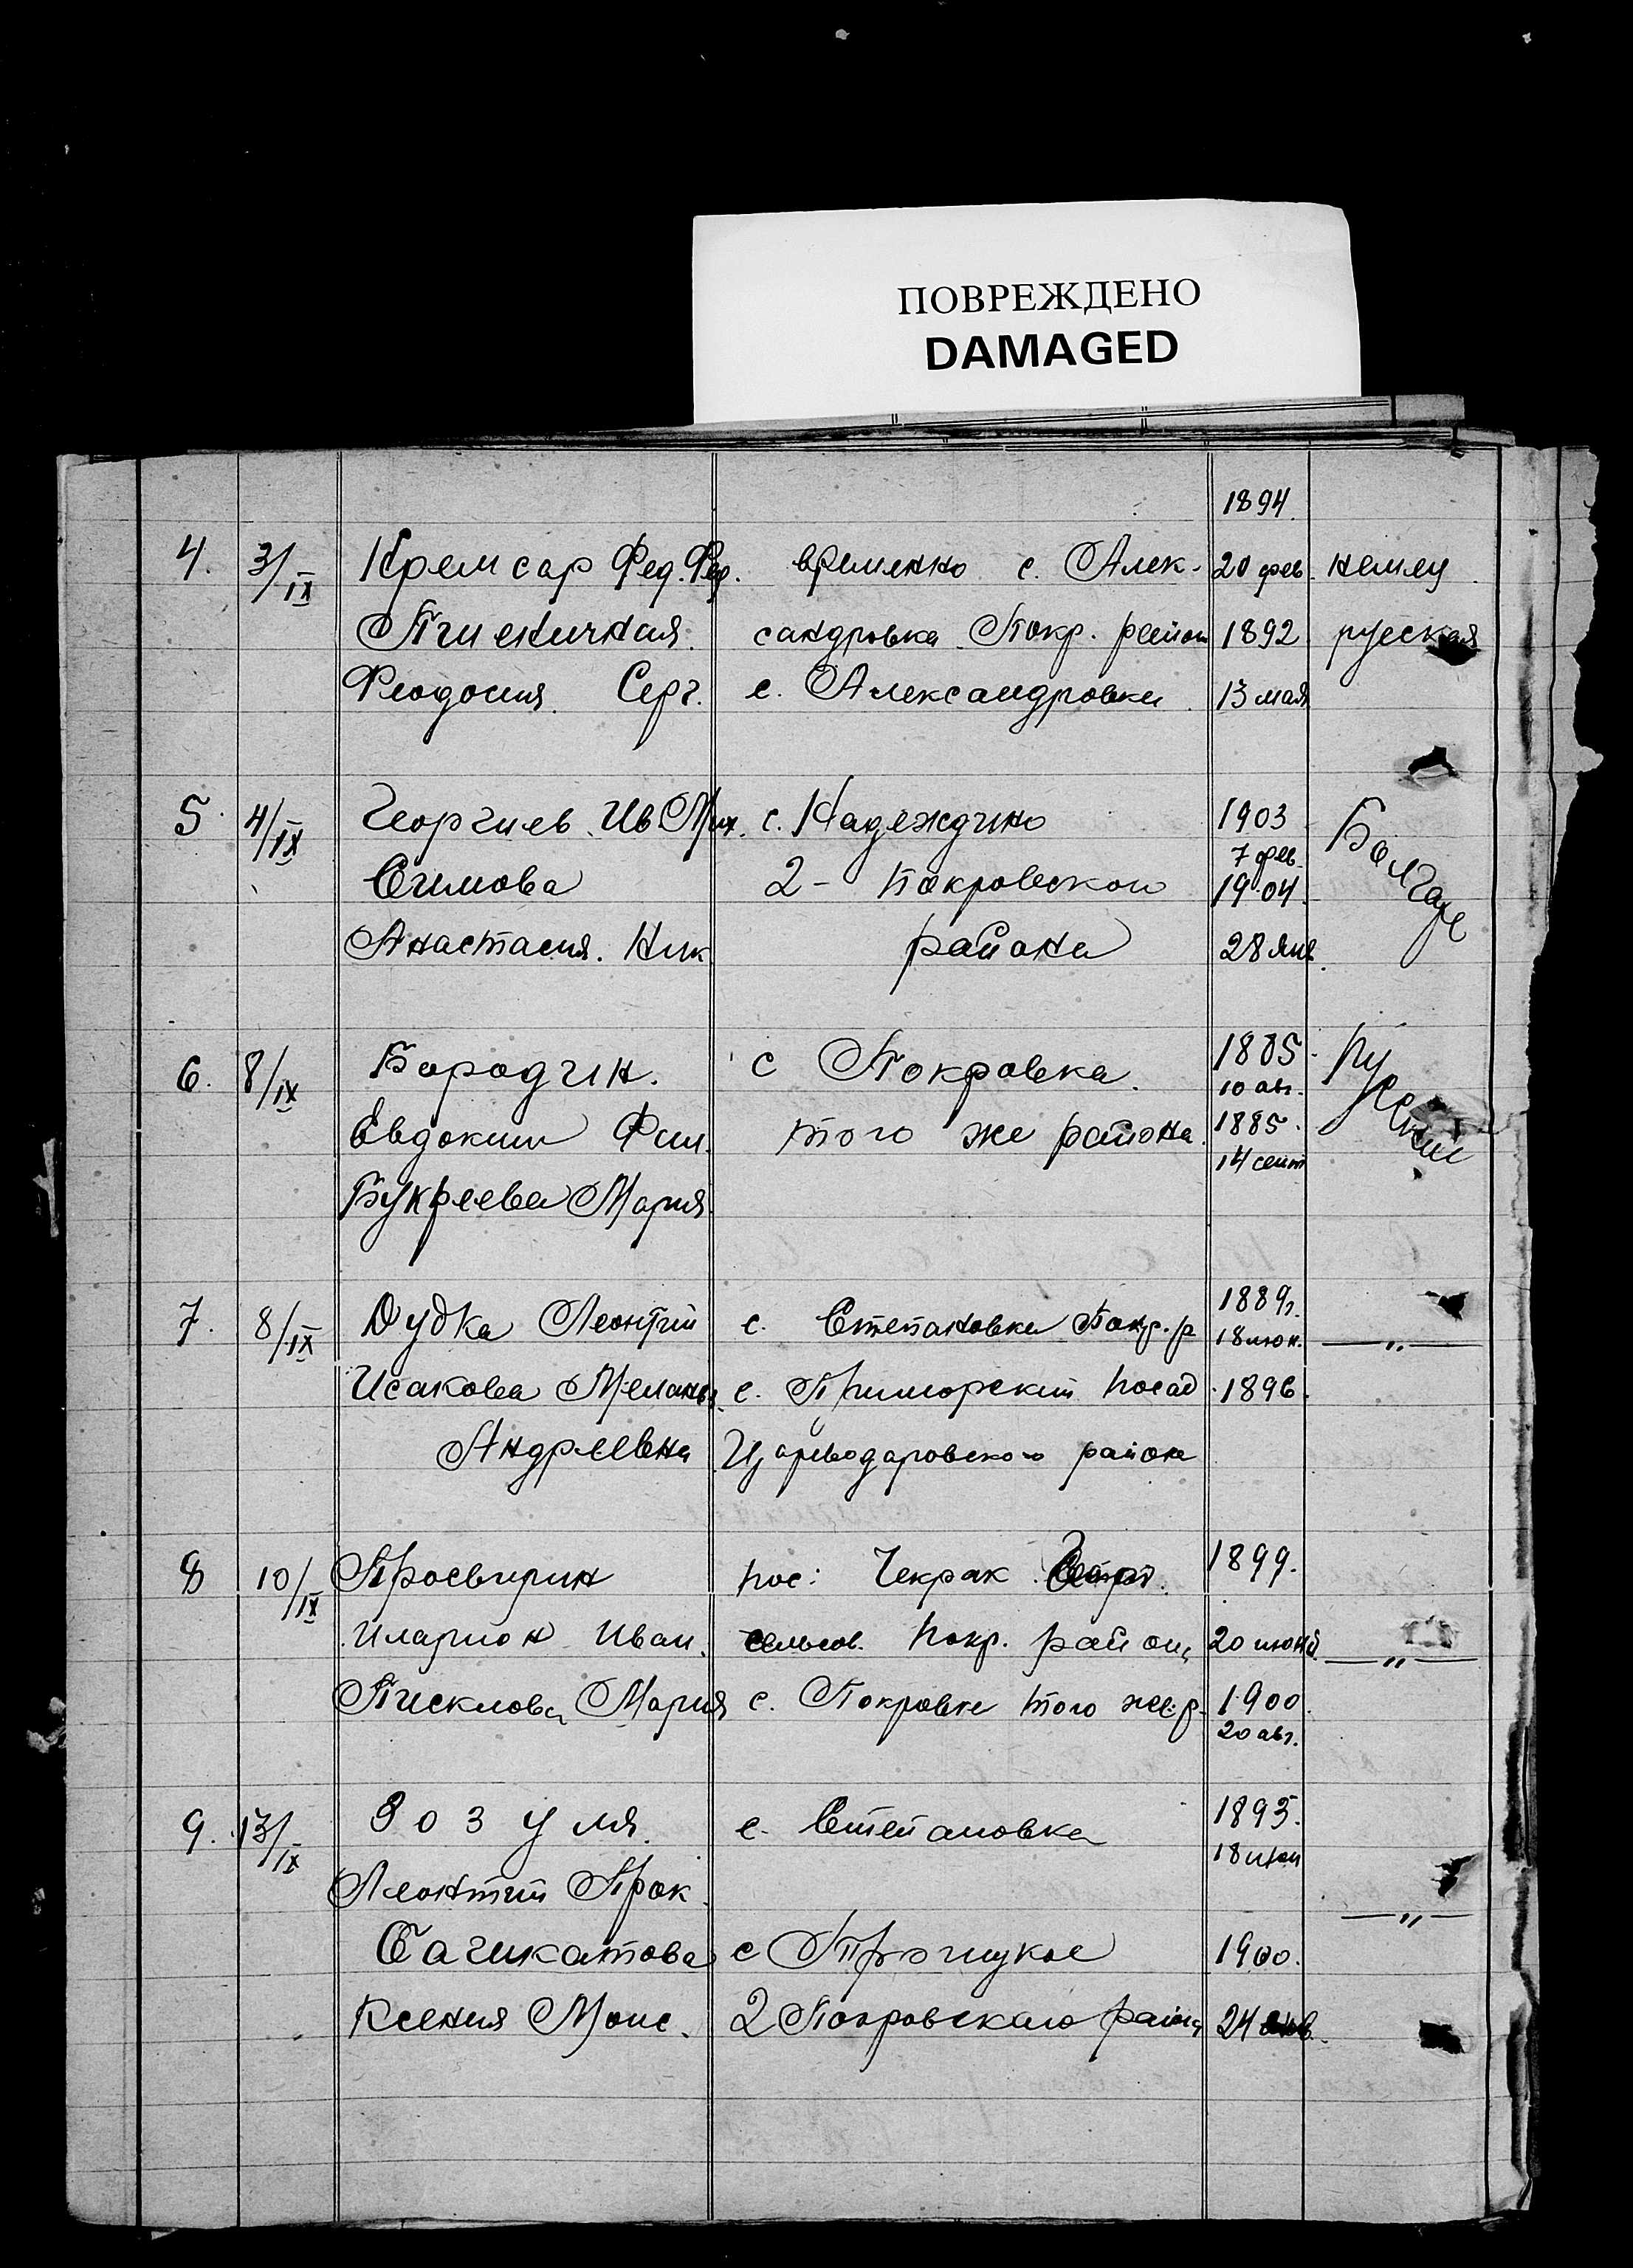 ПОВРЕЖДЕНО
DAMAGED
1894
4. 3/IX Кремсар Фед. Фед. временно с. Алек- 20 фев. немец
Пшеничная сандровка Покр. район 1892 русская
Феодосия Серг. с. Александровки 13 мая
5. 4/IX Георгиев Ив Мих. с. Надеждино 1903 Болгаре
7 фев.
2- Покровского 1904
Анастасия. Ник района 28 янв.
6. 8/IX Бородин. с Покровка. 1885 Русские
10 авг.
Евдоким Фил. того же района. 1885.
14 сент
Букреева Мария
1889г.
7. 8/IX Дудка Леонтий с. Степановки Покр. р 18 июн. —"—
Исакова Мелань с. Приморский посад 1896.
Андреевна Царьводаровского района
8 10/IX Просвирин пос: Чекрак 1899.
Иларион Иван. сельсов. Покр. район 20 июня —"—
Писклова Мария с. Покровки того же р. 1900
20 авг.
9. 13/IX Зозуля. с. Степановка 1895.
18 июн
Леонтий Прок. —"—
с Троицкое 1900.
Ксения Моис. 2 Покровского района 24 янв.